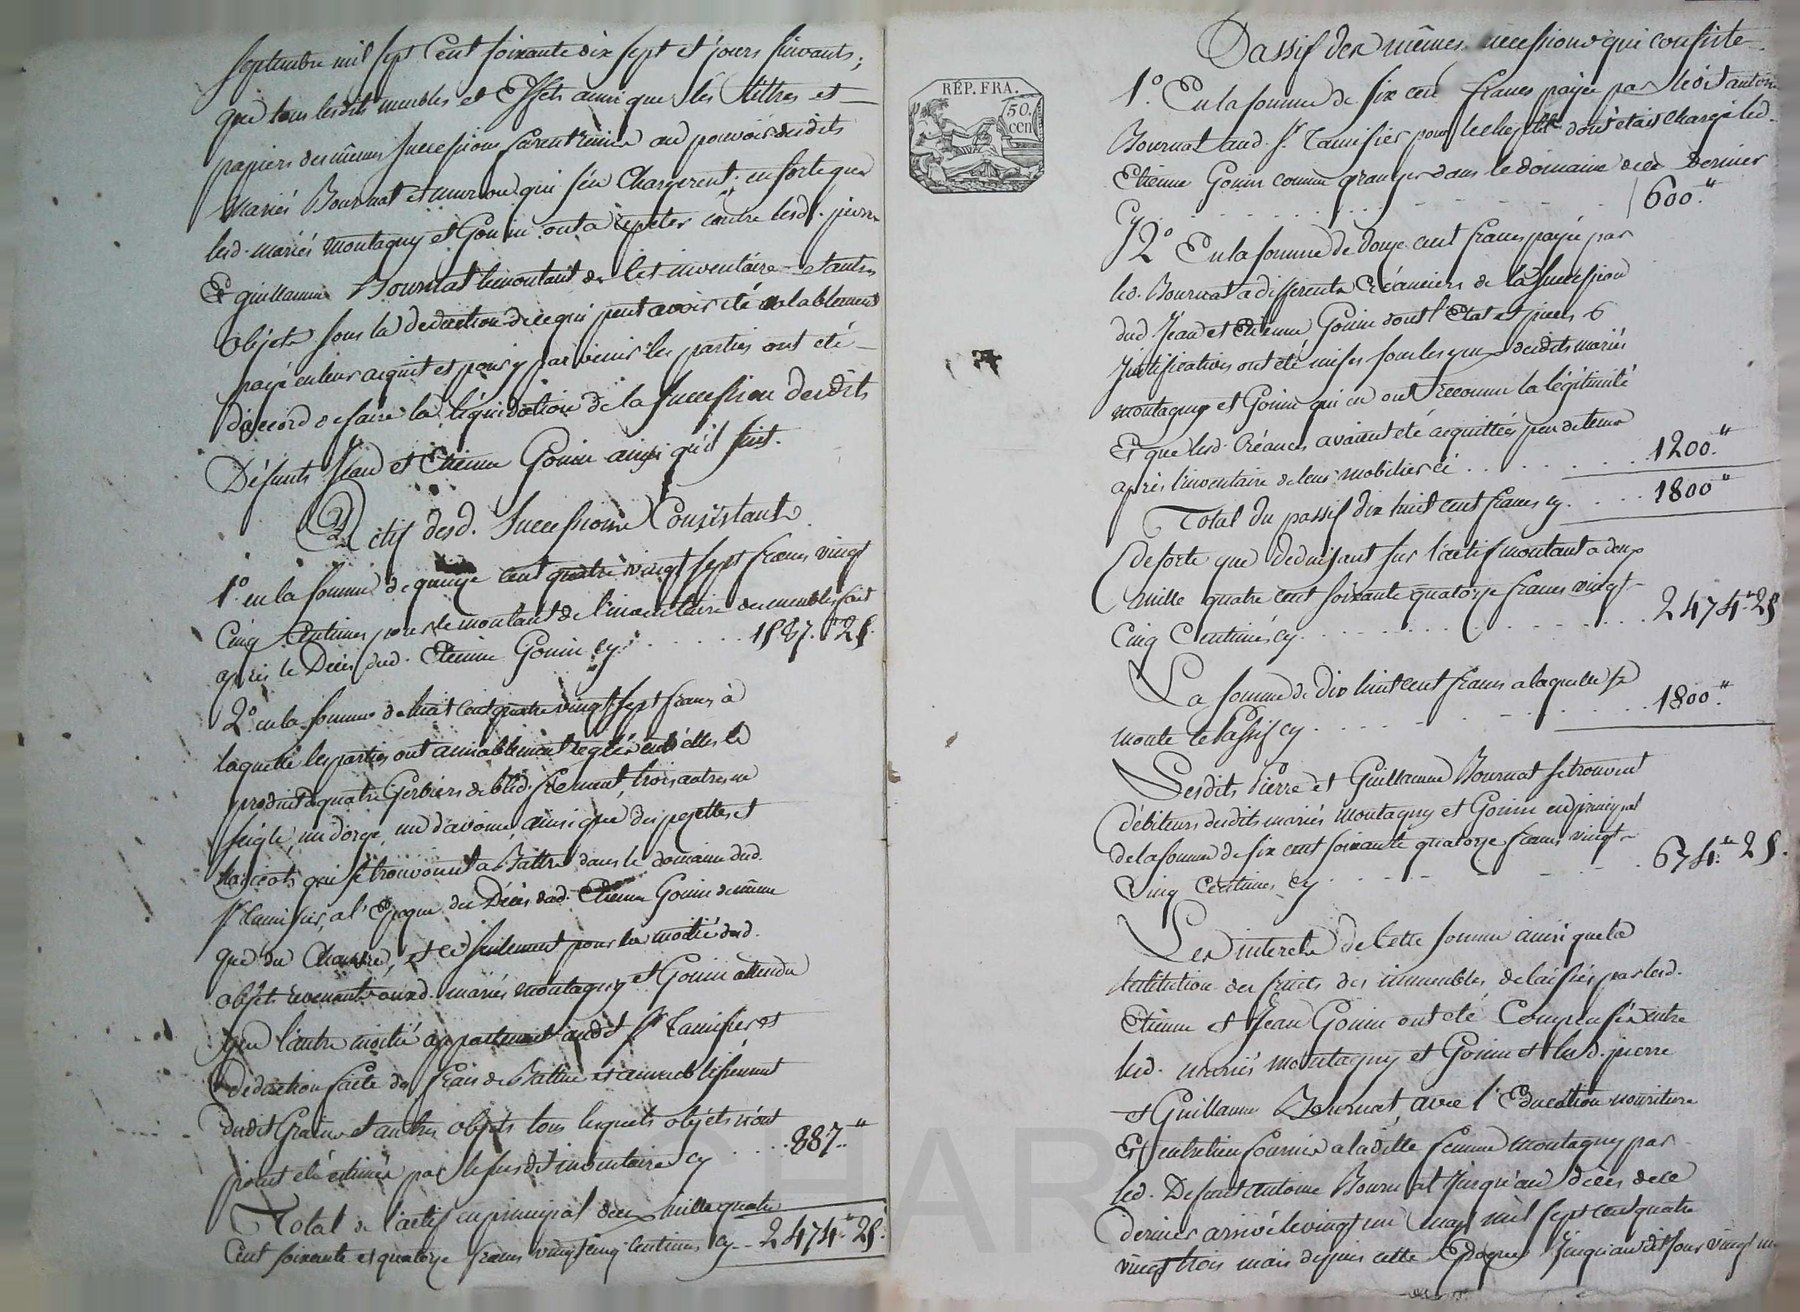 Septembre mil sept Cent soixante dix sept et jours suivants;
que tous lesdits meubles et Effets ainsi que les tittres et
papiers des mêmes Successions furent remis au pouvoir desdits
mariés Bournat et qui s'en Chargerent; en sorte que
lesd. mariés montagny et Gonin ont à répéter contre lesd. pierre
Et guillaume Bournat le montant de cet inventaire et autres
objets sous la déduction de ce qui peut avoir été valablement
payé en leur acquit et pour y parvenir les parties ont été
d'accord de faire la liquidation de la Succession desdits
Défunts Jean et Etienne Gonin ainsi qu'il suit.
Actif desd. Successions Consistant.
1.° en la somme de quinze cent quatre vingt sept francs vingt
Cinq Centimes pour le montant de l'inventaire des meubles fait
après le Décès dud. Etienne Gonin cy . . . . . . 1587.₶ 25.
2.° en la somme de huit cent quatre vingt sept francs à
laquelle les parties ont amiablement réglé entr'elles le
produit de quatre Gerbiers de bled froment, trois autres en
seigle, un d'orge, un d'avoine ainsi que des pezettes et
haricots qui se trouvoient a Battre dans le domaine dud.
Sr. Tamisier, a l'Epoque du Décès dud. Etienne Gonin de même
que du Chanvre, et ce seulement pour la moitié dud.
objet revenant auxd. mariés montagny et Gonin attendu
que l'autre moitié appartenait audit Sr. Tamisier et
Déduction faite des frais de Battue et
dudit Grain et autres objets tous lesquels objets n'ont
point été estimés par le susdit inventaire cy . . . . 887.₶
Total de l'actif en principal deux mille quatre
Cent soixante et quatorze francs vingt cinq Centimes cy . . 2474.₶ 25.
RÉP. FRA.
50.
cen
Passif des mêmes successions qui consiste
1.° En la somme de six cent francs payée par led. antoine
Bournat aud. Sr. Tamisier pour le cheptel dont étais chargé led.
Etienne Gonin comme granger dans le domaine de ce Dernier
Cy . . . . . . . . . . 600.₶
2.° En la somme de douze cent francs payée par
led. Bournat a differents Créanciers de la Succession
dud. Jean et Etienne Gonin dont l'Etat et pieces
Justificatives ont été mises sous les yeux desdits mariés
montagny et Gonin qui en ont reconnu la légitimité
Et que lesd. Créances avaient été acquittées peu de tems
après l'inventaire de leur mobilier ci . . . . . . . 1200.₶
Total du passif dix huit cent francs cy . . . . 1800₶
De sorte que Déduisant sur l'actif montant a deux
mille quatre cent soixante quatorze francs vingt
Cinq Centimes cy . . . . . . . . . 2474.₶ 25
La somme de dix huit cent francs a laquelle se
monte le Passif cy . . . . . . . . . 1800.₶
Lesdits Pierre et Guillaume Bournat se trouvent
débiteurs desdits mariés montagny et Gonin en principal
de la somme de six cent soixante quatorze francs vingt
Cinq Centimes cy . . . . . . 674.₶ 25.
Les interets de Cette somme ainsi que la
restitution des fruits des immeubles delaissés par lesd.
Etienne et Jean Gonin ont été Compensés entre
lesd. mariés montagny et Gonin et lesd. pierre
et Guillaume Bournat, avec l'Education nourriture
Et entretien fournis a ladite femme montagny par
led. Defunt antoine Bournat Jusqu'au décès de ce
dernier arrivé le vingt un may mil sept cent quatre
vingt trois mais depuis cette Epoque Jusqu'audit jour vingt un